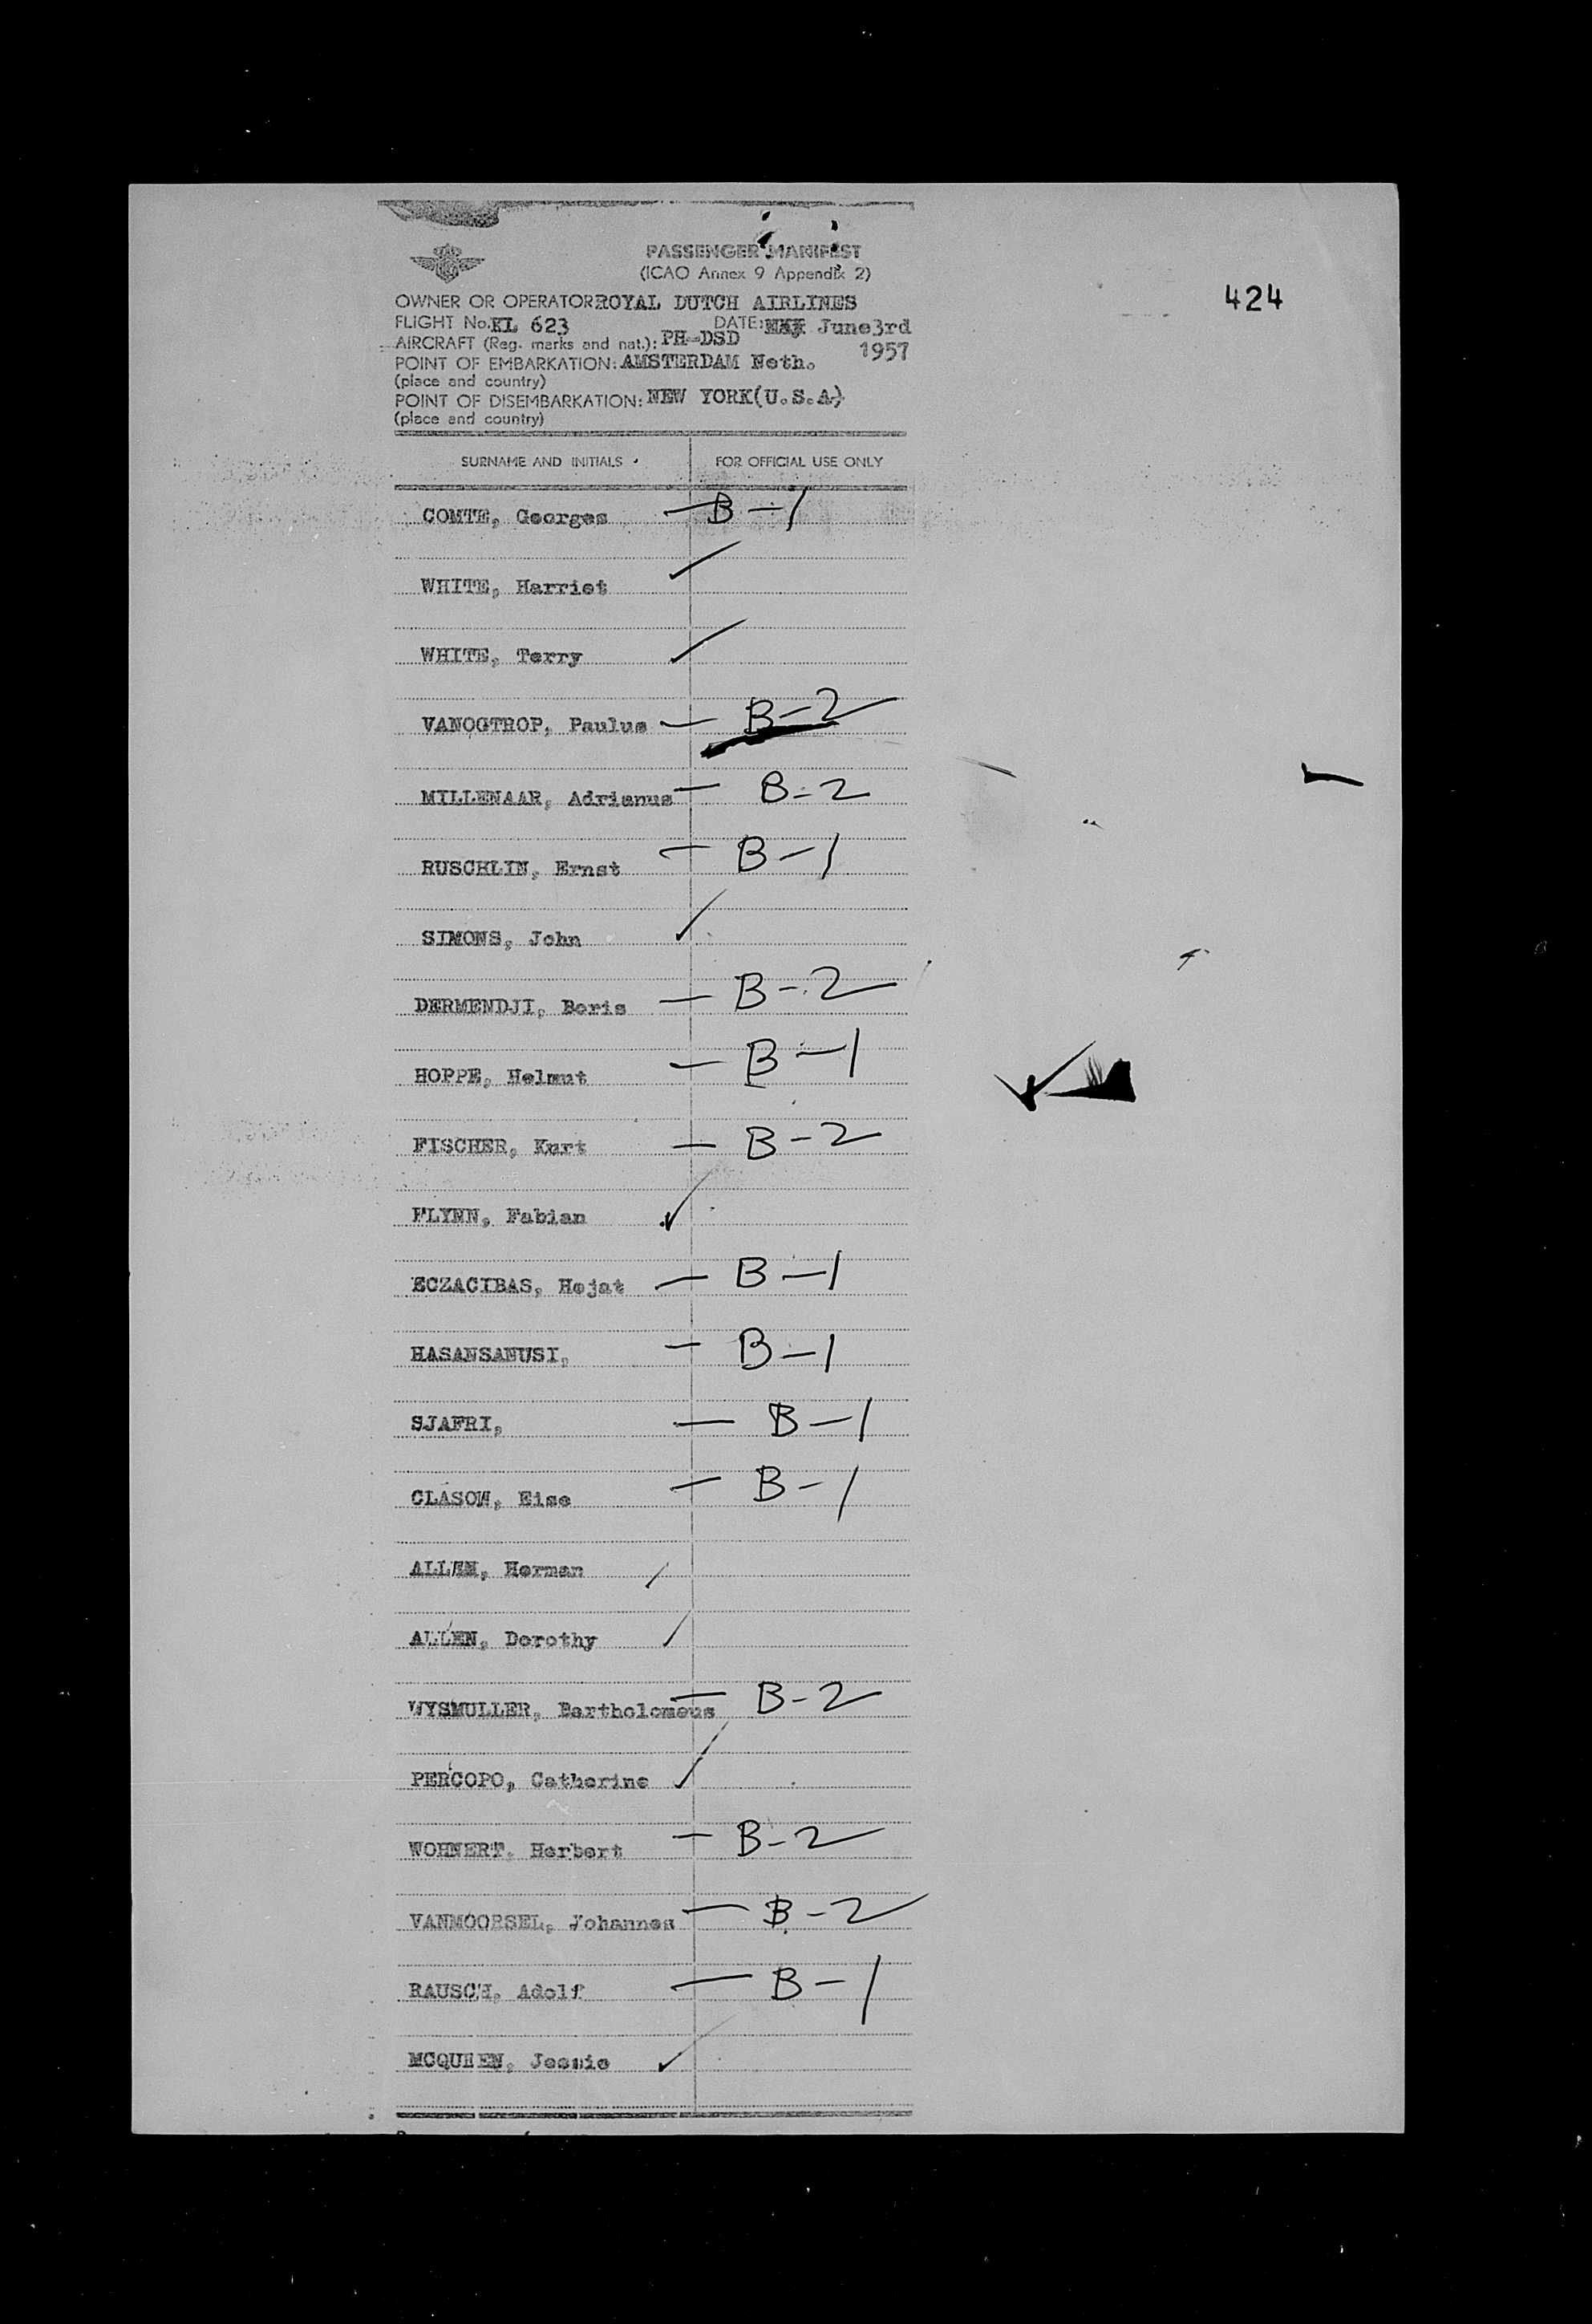 PASSENGER MANIFEST
(ICAO Annex 9 Appendix 2)
424
OWNER OR OPERATOR ROYAL DUTCH AIRLINES
FLIGHT No. KL 623 DATE: June 3rd
AIRCRAFT (Reg. marks and nat.): PH-DSD 1957
POINT OF EMBARKATION: AMSTERDAM Neth.
(place and country)
POINT OF DISEMBARKATION: NEW YORK (U.S.A.)
(place and country)
SURNAME AND INITIALS FOR OFFICIAL USE ONLY
COMTE, Georges — B-1
WHITE, Harriet ✓
WHITE, Terry ✓
VANOGTROP, Paulus — B-2
MILLENAAR, Adrianus — B-2
RUSCHLIN, Ernst — B-1
SIMONS, John ✓
DERMENDJI, Boris — B-2
HOPPE, Helmut — B-1
FISCHER, Kurt — B-2
FLYNN, Fabian ✓
ECZACIBAS, Hejat — B-1
HASANSANUSI, — B-1
SJAFRI, — B-1
CLASOW, Else — B-1
ALLEN, Herman ✓
ALLEN, Dorothy ✓
WYSMULLER, Bartholomeus — B-2
PERCOPO, Catherine ✓
WOHNERT, Herbert — B-2
VANMOORSEL, Johannes — B-2
RAUSCH, Adolf — B-1
MCQUEEN, Jessie ✓